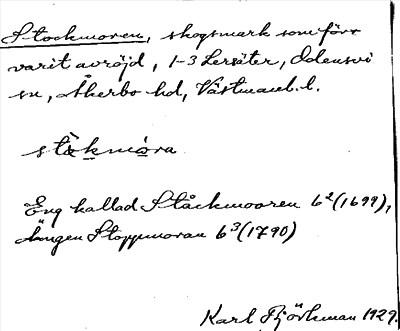 Stockmoren, skogsmark som förr
varit avröjd, 1-3 Lersäter, Odensvi
sn, Åkerbo hd, Västmanl. l.
stòkmòra
Äng kallad Ståckmooren 6²(1699),
Ängen Stoppmoran 6³(1790)
Karl Fjörkman 1929.